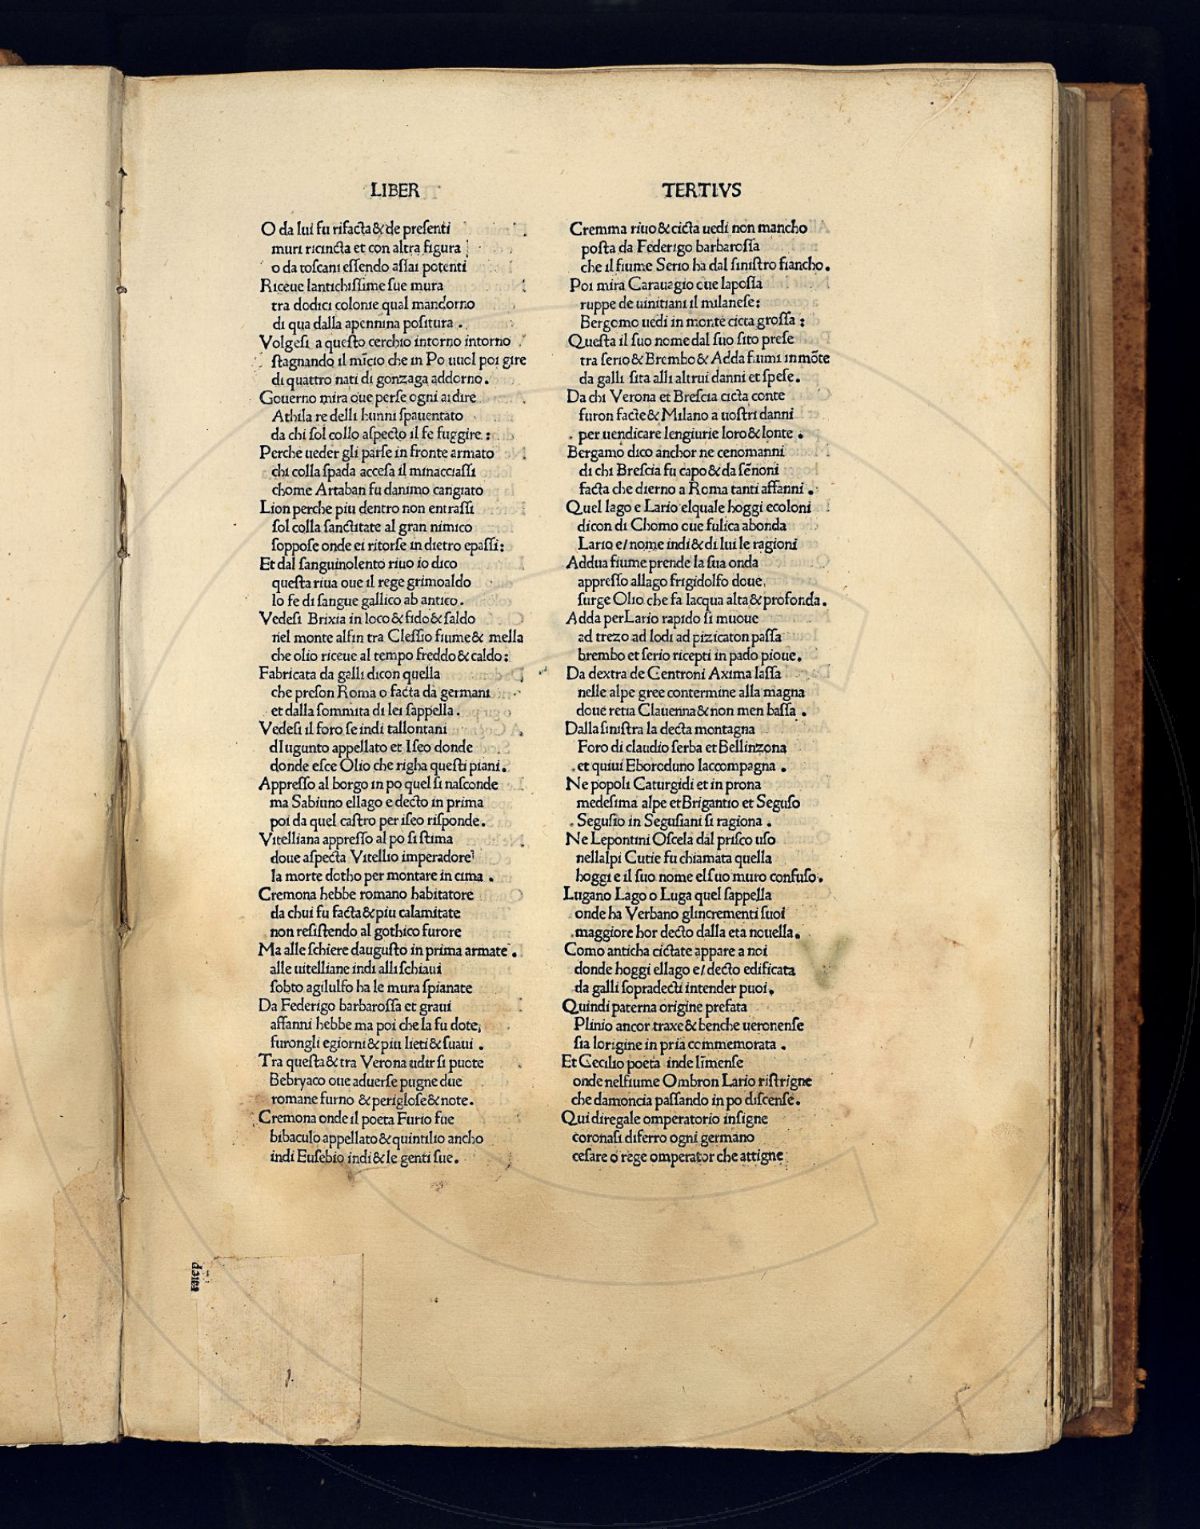 LIBER
O da lui fu rifacta & de presenti
muri ricincta et con altra figura
o da toscani essendo assai potenti
Riceue lantichissime sue mura
tra dodici colonie qual mandorno
di qua dalla apennina positura .
Volgesi a questo cerchio intorno intorno
stagnando il mīcio che in Po uuol poi gire
di quattro nati di gonzaga addorno.
Gouerno mira oue perse ogni ardire
Athila re delli hunni spauentato
da chi sol collo aspecto il fe fuggire :
Perche ueder gli parse in fronte armato
chi colla spada accesa il minacciassi
chome Artaban fu danimo cangiato
Lion perche piu dentro non entrassi
sol colla sanctitate al gran nimico
soppose onde ei ritorse in dietro epassi:
Et dal sanguinolento riuo io dico
questa riua oue il rege grimoaldo
lo fe di sangue gallico ab antico.
Vedesi Brixia in loco & fido & saldo
nel monte alsin tra Clessio fiume & mella
che olio riceue al tempo freddo & caldo:
Fabricata da galli dicon quella
che preson Roma o facta da germani
et dalla sommita di lei sappella .
Vedesi il foro se indi tallontani
dIugunto appellato et Iseo donde
donde esce Olio che righa questi piani.
Appresso al borgo in po quel si nasconde
ma Sabiuno ellago e decto in prima
poi da quel castro per iseo risponde.
Vitelliana appresso al po si stima
doue aspecta Vitellio imperadore
la morte dotho per montare in cima .
Cremona hebbe romano habitatore
da chui fu facta & piu calamitate
non resistendo al gothico furore
Ma alle schiere daugusto in prima armate .
alle uitelliane indi alli schiaui
sobto agilulfo ha le mura spianate
Da Federigo barbarossa et graui
affanni hebbe ma poi che la fu dote,
furongli egiorni & piu lieti & suaui .
Tra questa & tra Verona udir si puote
Bebryaco oue aduerse pugne due
romane furno & periglose & note.
Cremona onde il poeta Furio fue
bibaculo appellato & quintilio ancho
indi Eusebio indi & le genti sue.
TERTIVS
Cremma riuo & cicta uedi non mancho
posta da Federigo barbarossa
che il fiume Serio ha dal sinistro fiancho.
Poi mira Carauagio oue lapossa
ruppe de uinitiani il milanese:
Bergomo uedi in monte cicta grossa :
Questa il suo nome dal suo sito prese
tra serio & Brembo & Adda fiumi in mōte
da galli sita alli altrui danni et spese.
Da chi Verona et Brescia cicta conte
furon facte & Milano a uostri danni
per uendicare lengiurie loro & lonte .
Bergamo dico anchor ne cenomanni
di chi Brescia fu capo & da sēnoni
facta che dierno a Roma tanti affanni .
Quel lago e Lario elquale hoggi ecoloni
dicon di Chomo oue fulica abonda
Lario e/ nome indi & di lui le ragioni
Addua fiume prende la sua onda
appresso allago frigidolfo doue,
surge Olio che fa lacqua alta & profonda.
Adda per Lario rapido si muoue
ad trezo ad lodi ad pizicaton passa
brembo et serio ricepti in pado pioue.
Da dextra de Centroni Axima lassa
nelle alpe gree contermine alla magna
doue retia Clauenna & non men bassa .
Dalla sinistra la decta montagna
Foro di claudio serba et Bellinzona
et quiui Eboroduno laccompagna .
Ne popoli Caturgidi et in prona
medesima alpe et Brigantio et Seguso
Segusio in Segusiani si ragiona .
Ne Lepontini Oscela dal prisco uso
nellalpi Cutie fu chiamata quella
hoggi e il suo nome el suo muro confuso.
Lugano Lago o Luga quel sappella
onde ha Verbano glincrementi suoi
maggiore hor decto dalla eta nouella.
Como anticha cictate appare a noi
donde hoggi ellago e/ decto edificata
da galli sopradecti intender puoi.
Quindi paterna origine prefata
Plinio ancor traxe & benche ueronense
sia lorigine in pria commemorata .
Et Cecilio poeta inde līmense
onde nel fiume Ombron Lario ristrigne
che damoncia passando in po discense.
Qui diregale omperatorio insigne
coronasi di ferro ogni germano
cesare o rege omperator che attigne